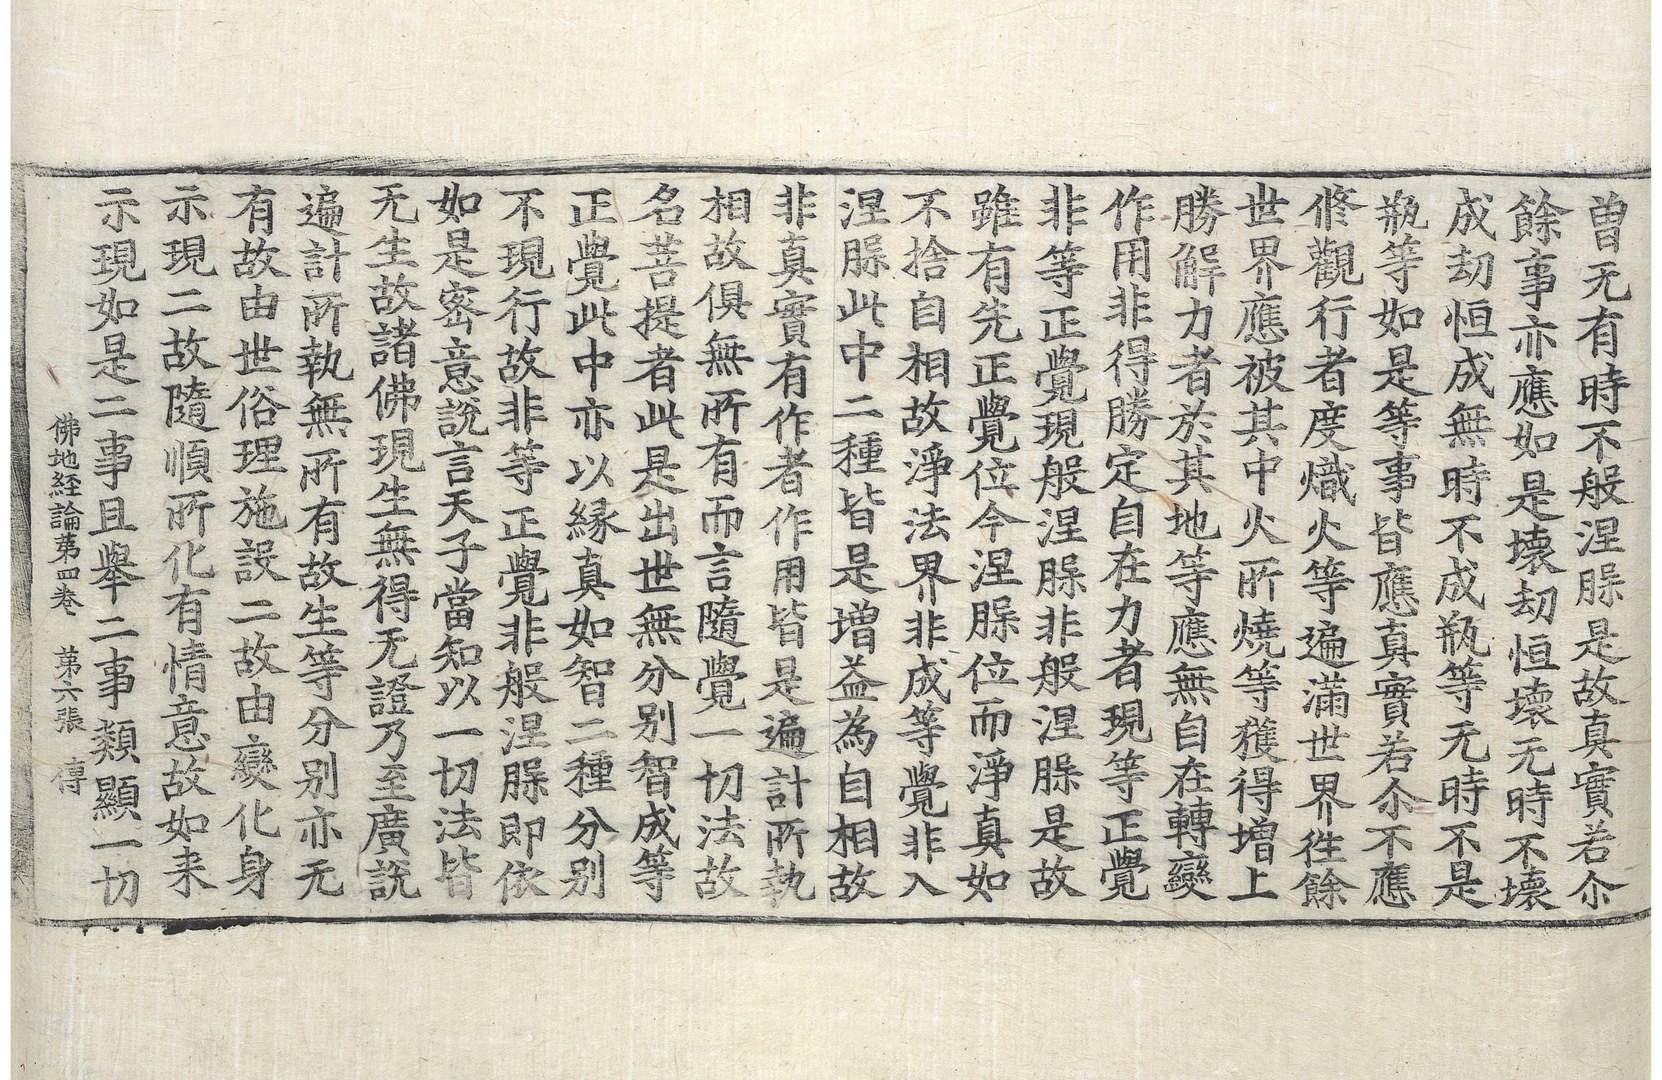 曾无有時不般涅槃是故真實若尒
餘事亦應如是壞劫恒壞无時不壞
成劫恒成無時不成瓶等无時不是
瓶等如是等事皆應真實若尒不應
修觀行者度熾火等遍滿世界徃餘
世界應被其中火所燒等獲得增上
勝解力者於其地等應無自在轉變
作用非得勝定自在力者現等正覺
非等正覺現般涅槃非般涅槃是故
雖有先正覺位今涅槃位而淨真如
不捨自相故淨法界非成等覺非入
涅槃此中二種皆是增益為自相故
非真實有作者作用皆是遍計所執
相故俱無所有而言隨覺一切法故
名菩提者此是出世無分別智成等
正覺此中亦以緣真如智二種分別
不現行故非等正覺非般涅槃即依
如是密意說言天子當知以一切法皆
无生故諸佛現生無得无證乃至廣說
遍計所執無所有故生等分別亦无
有故由世俗理施設二故由變化身
示現二故隨順所化有情意故如来
示現如是二事且舉二事類顯一切
佛地経論苐四卷 苐六張 傳